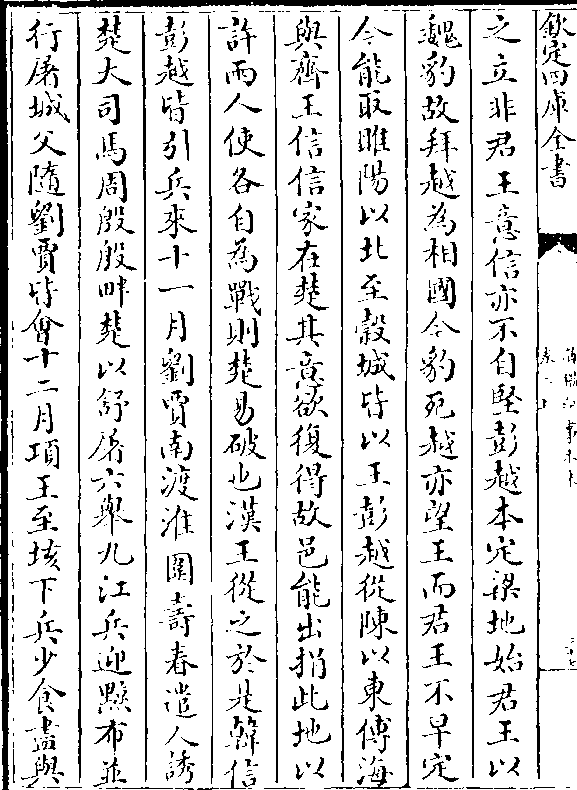 欽定四庫全書
之立非君王意信亦不自堅彭越本定梁地始君王以
魏豹故拜越為相國今豹死越亦望王而君王不早定
今能取睢陽以北至穀城皆以王彭越從陳以東傅海
與齊王信信家在楚其意欲復得故邑能出捐此地以
許兩人使各自為戰則楚易破也漢王從之於是韓信
彭越皆引兵來十一月劉賈南渡淮圍壽春遣人誘
楚大司馬周殷殷畔楚以舒屠六舉九江兵迎黥布並
行屠城父隨劉賈皆會十二月項王至垓下兵少食盡與